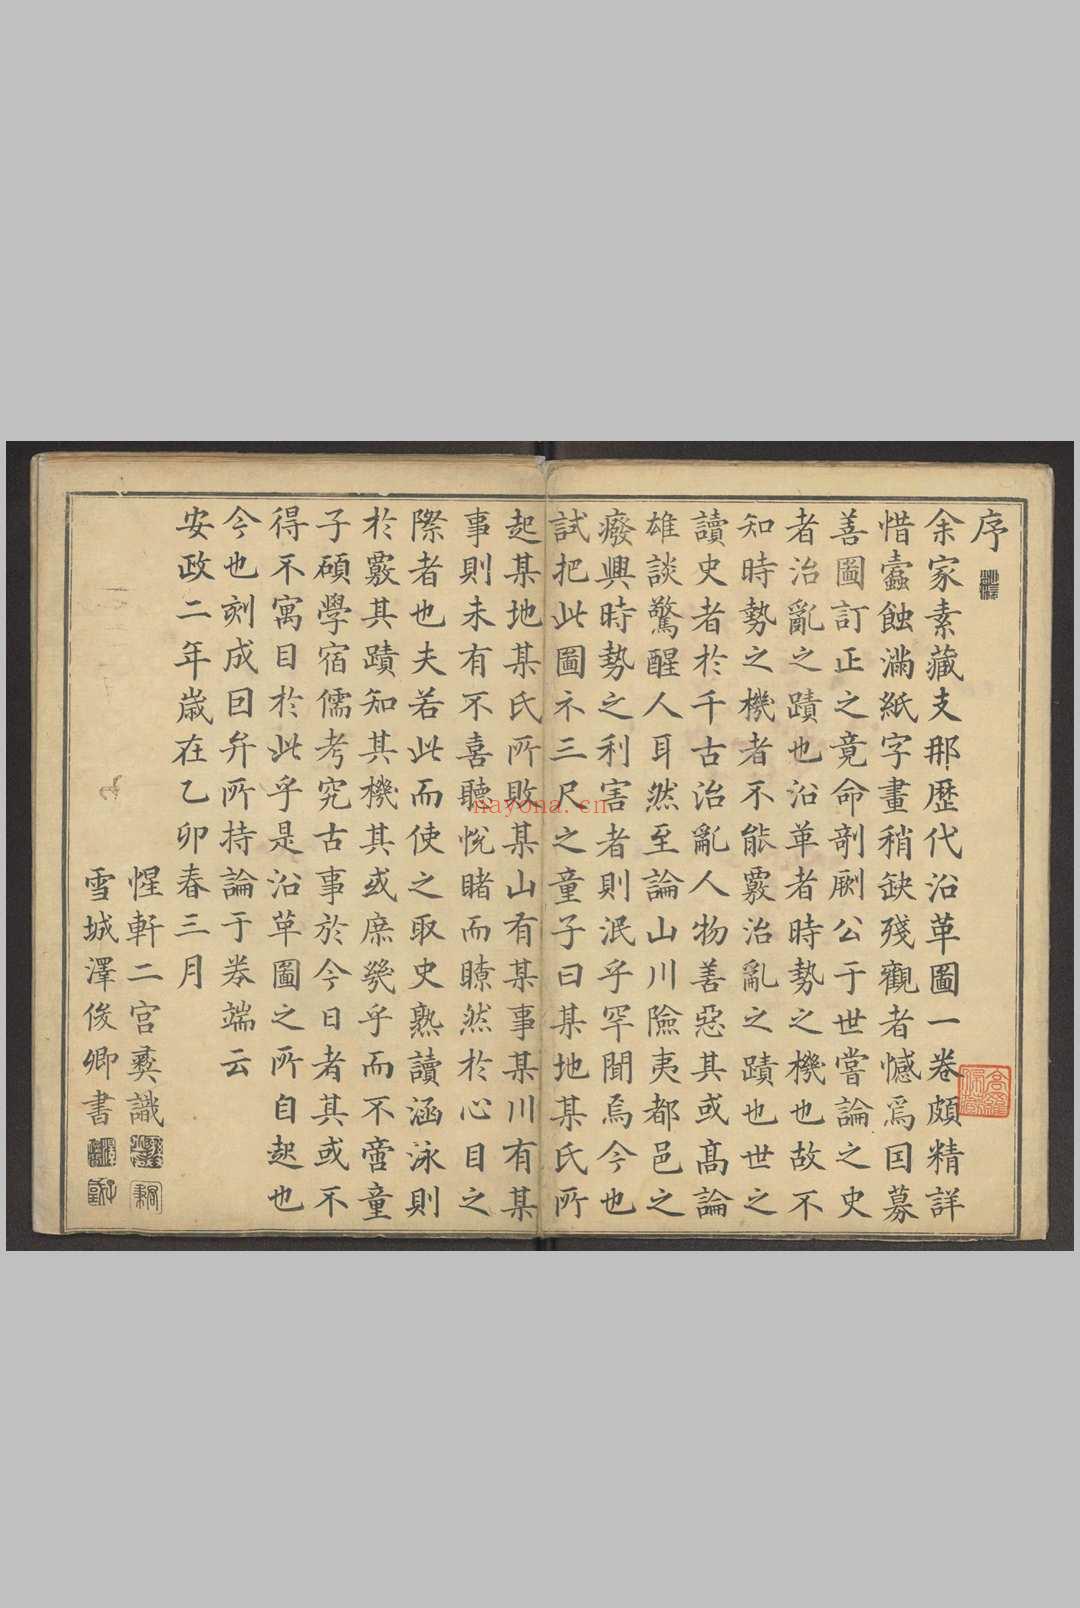 序
余家素藏支那歷代沿革圖一卷頗精詳
惜蠧蝕滿紙字畫稍缺殘觀者憾焉因募
善圖訂正之竟命剞劂公于世嘗論之史
者治亂之蹟也沿革者時勢之機也故不
知時勢之機者不能覈治亂之蹟也世之
讀史者於千古治亂人物善惡其或髙論
雄談驚醒人耳然至論山川險夷都邑之
癈興時勢之利害者則泯乎罕聞焉今也
試把此圖示三尺之童子曰某地某氏所
起某地某氏所敗某山有某事某川有某
事則未有不喜聽悅睹而瞭然於心目之
際者也夫若此而使之取史熟讀涵泳則
於覈其蹟知其機其或庶幾乎而不啻童
子碩學宿儒考究古事於今日者其或不
得不寓目於此乎是沿革圖之所自起也
今也刻成因弁所持論于券端云
安政二年歲在乙卯春三月
惺軒二宮彜識
雪城澤俊卿書
nayona.cn